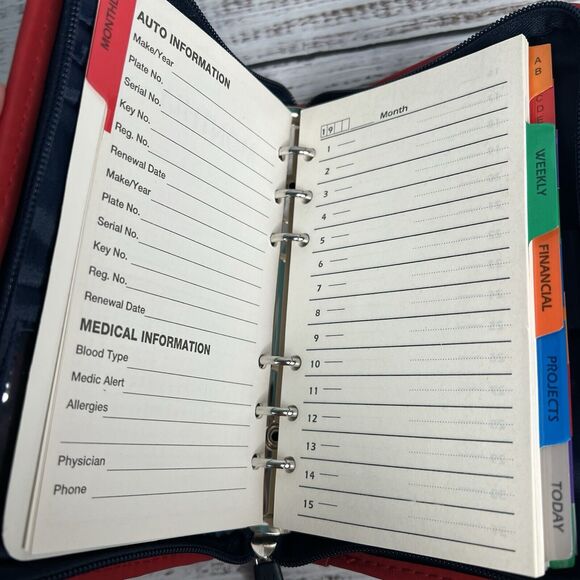 MONTHL
AUTO INFORMATION
Make/Year
Plate No.
Serial No.
Key No.
Reg. No.
Renewal Date
Make/Year
Plate No.
Serial No.
Key No.
Reg. No.
Renewal Date
MEDICAL INFORMATION
Blood Type
Medic Alert
Allergies
Physician
Phone
19 Month
1
2
3
4
5
6
7
8
9
10
11
12
13
14
15
A B
C D E
WEEKLY
FINANCIAL
PROJECTS
TODAY